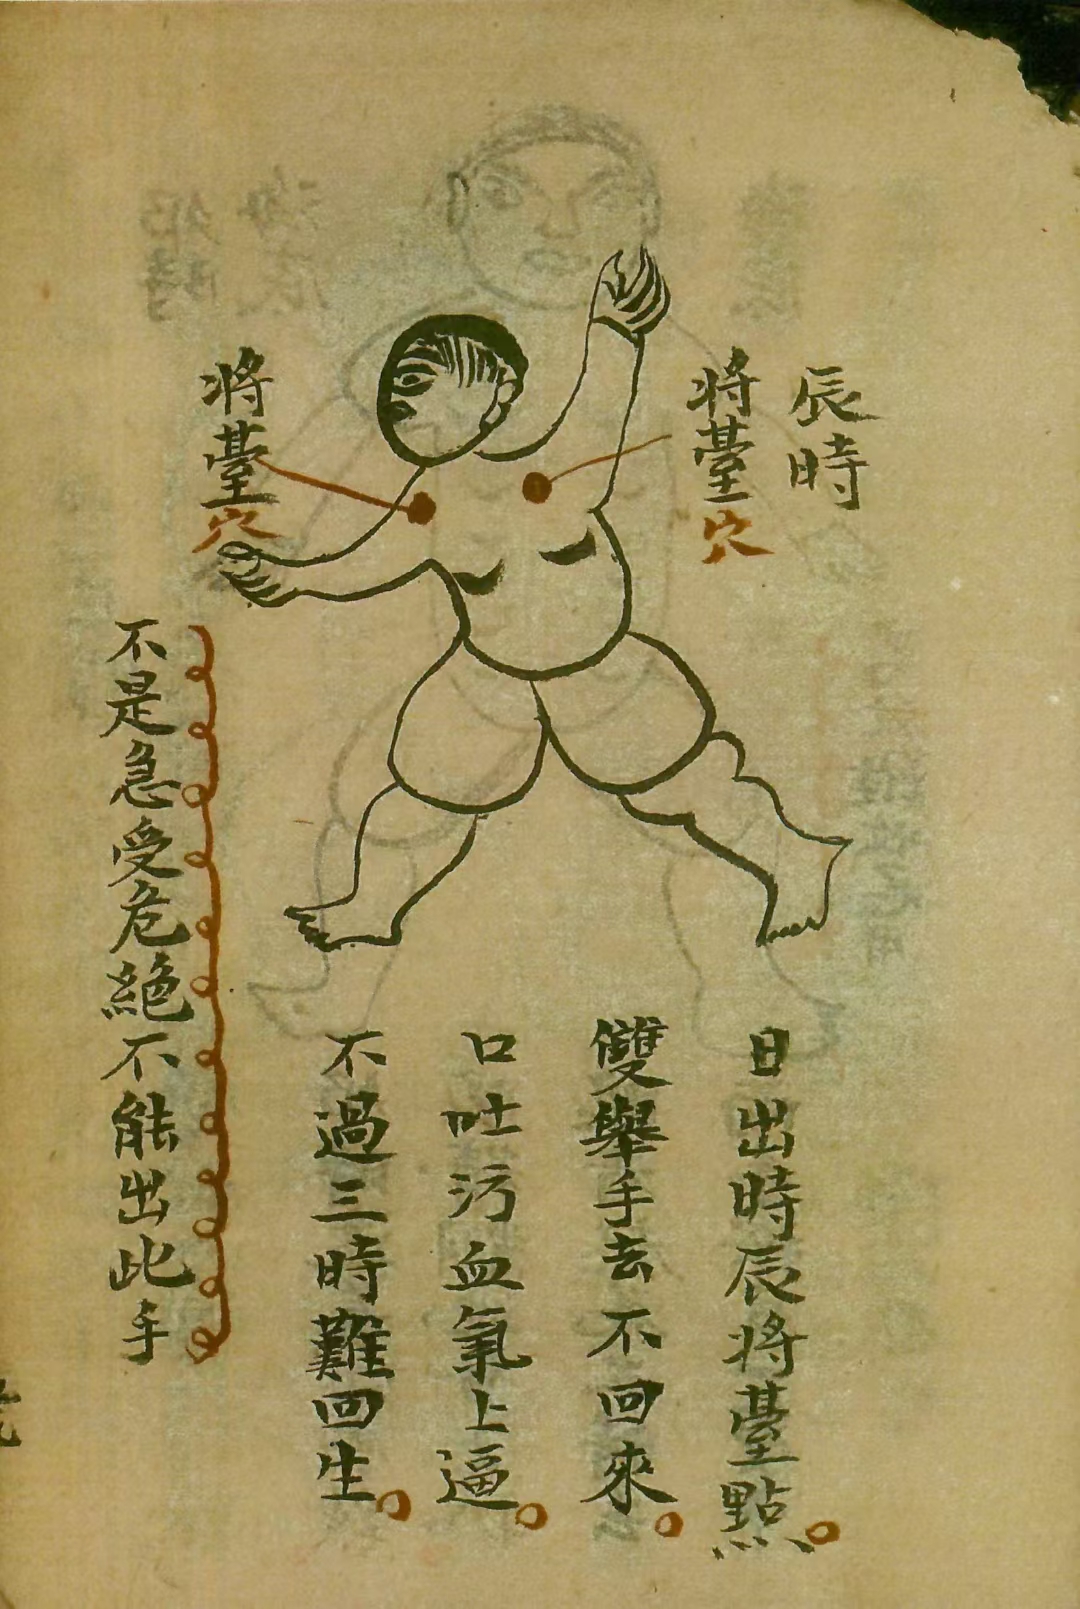 辰時
將臺穴
將臺穴
日出時辰將臺點。
雙舉手去不回來。
口吐污血氣上逼。
不過三時難回生。
不是急受危絕不能出此手